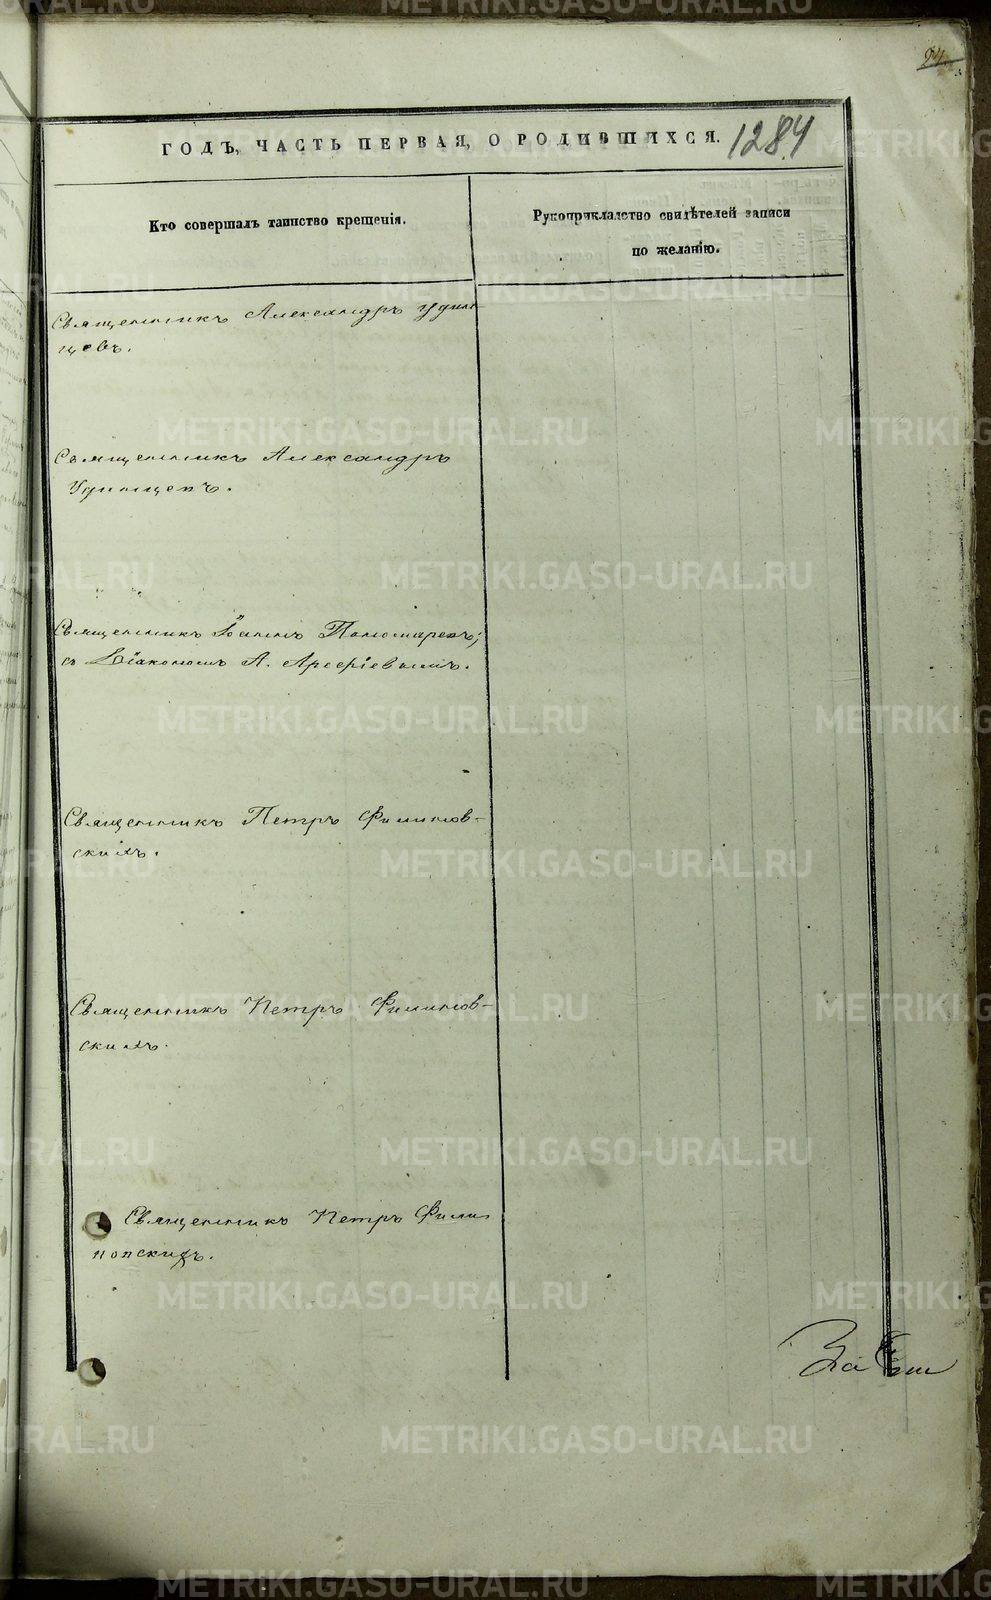 24.
ГОДЪ, ЧАСТЬ ПЕРВАЯ, О РОДИВШИХСЯ. 1284
Кто совершалъ таинство крещенія.
Рукоприкладство свидѣтелей записи
по желанію.
Священникъ Александръ Удин-
цовъ.
Священникъ Александръ
Удинцевъ.
Священникъ Іоаннъ Пономаревъ;
съ Діакономъ А. Арефіевымъ.
Священникъ Петръ Филипов-
скихъ.
Священникъ Петръ Филипов-
скихъ.
Священникъ Петръ Фили-
повскихъ.
METRIKI.GASO-URAL.RU